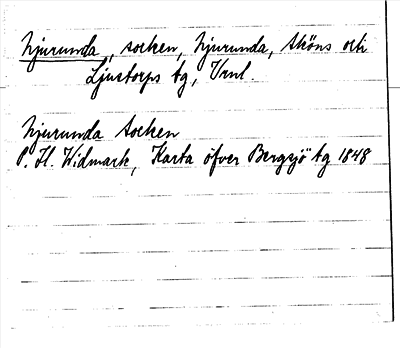 Njurunda, socken, Njurunda, Sköns och
Ljustorps tg, Vnl.
Njurunda Socken
P. H. Widmark, Karta öfver Bergsjö tg 1848